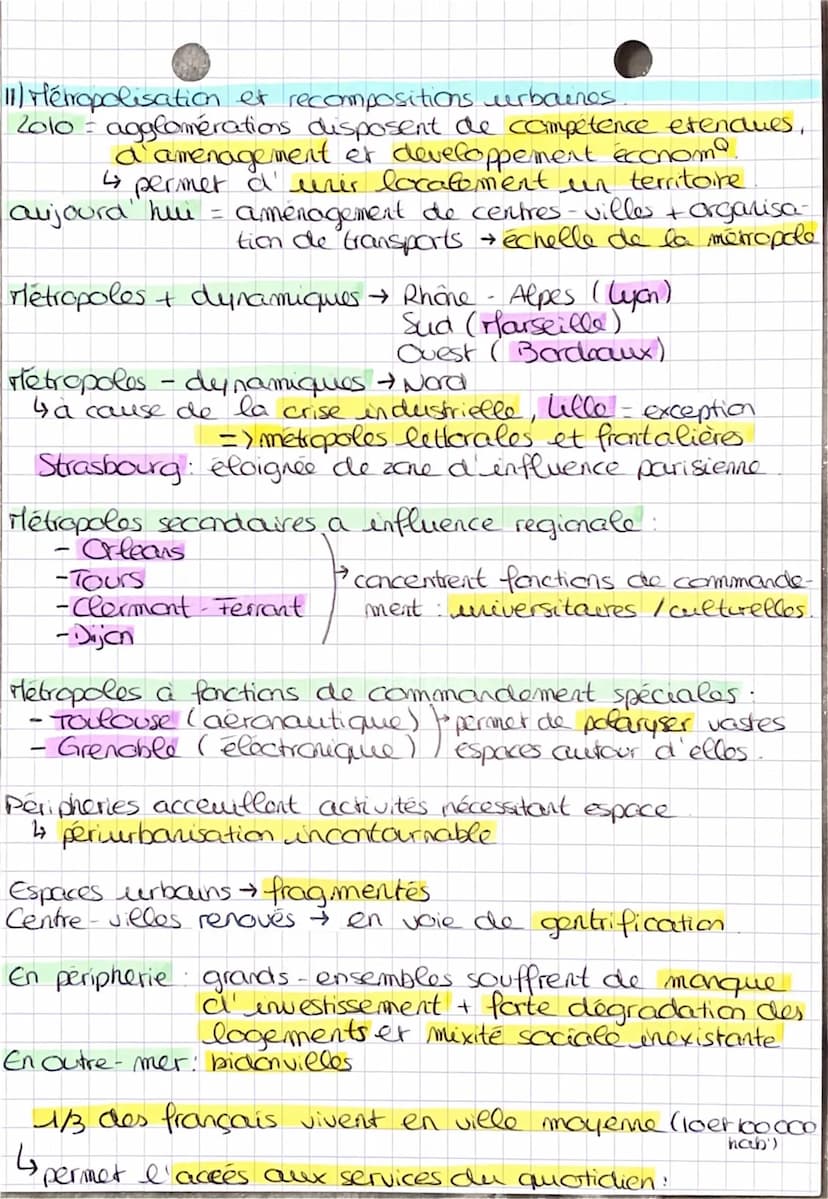 II) Métropolisation et recompositions urbaines.
2010 = agglomérations disposent de compétence etendues,
d'aménagement et developpement économQ.
↳ permet d'unir localement un territoire.
aujourd'hui = aménagement de centres-villes + organisa-
tion de transports → échelle de la métropole
Métropoles + dynamiques → Rhône - Alpes (Lyon)
Sud (Marseille)
Ouest (Bordeaux)
Métropoles - dynamiques → Nord
↳ à cause de la crise industrielle, Lille = exception
=> métropoles lettorales et frontalières
Strasbourg : éloignée de zone d'influence parisienne.
Métropoles secondaires a influence regionale :
- Orleans
- Tours
- Clermont - Ferrant
- Dijon
→ concentrent fonctions de commande-
ment : universitaires / culturelles.
Métropoles à fonctions de commandement spéciales :
- Toulouse (aéronautique) → permet de polaryser vastes
- Grenoble (électronique) espaces autour d'elles.
Péripheries acceuillent activités nécessitant espace.
↳ périurbanisation incontournable
Espaces urbains → fragmentés
Centre-villes renovés → en voie de gentrification.
En péripherie : grands-ensembles souffrent de manque
d'investissement + forte dégradation des
logements et mixité sociale inexistante
En outre-mer : bidonvilles
1/3 des français vivent en ville moyenne (10 et 100 000
hab')
↳ permet l'accés aux services du quotidien :